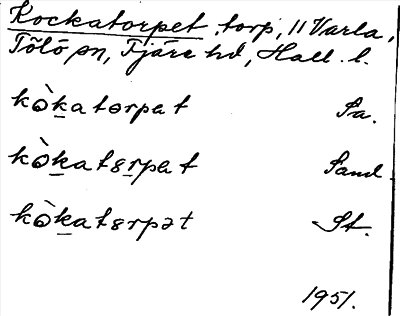 Kockatorpet, torp, 11 Varla,
Tölö sn, Fjäre hd, Hall. l.
kòḵatorpet Sa.
kòḵatɛṟpet Sand.
kòḵatɛrpət St.
1951.